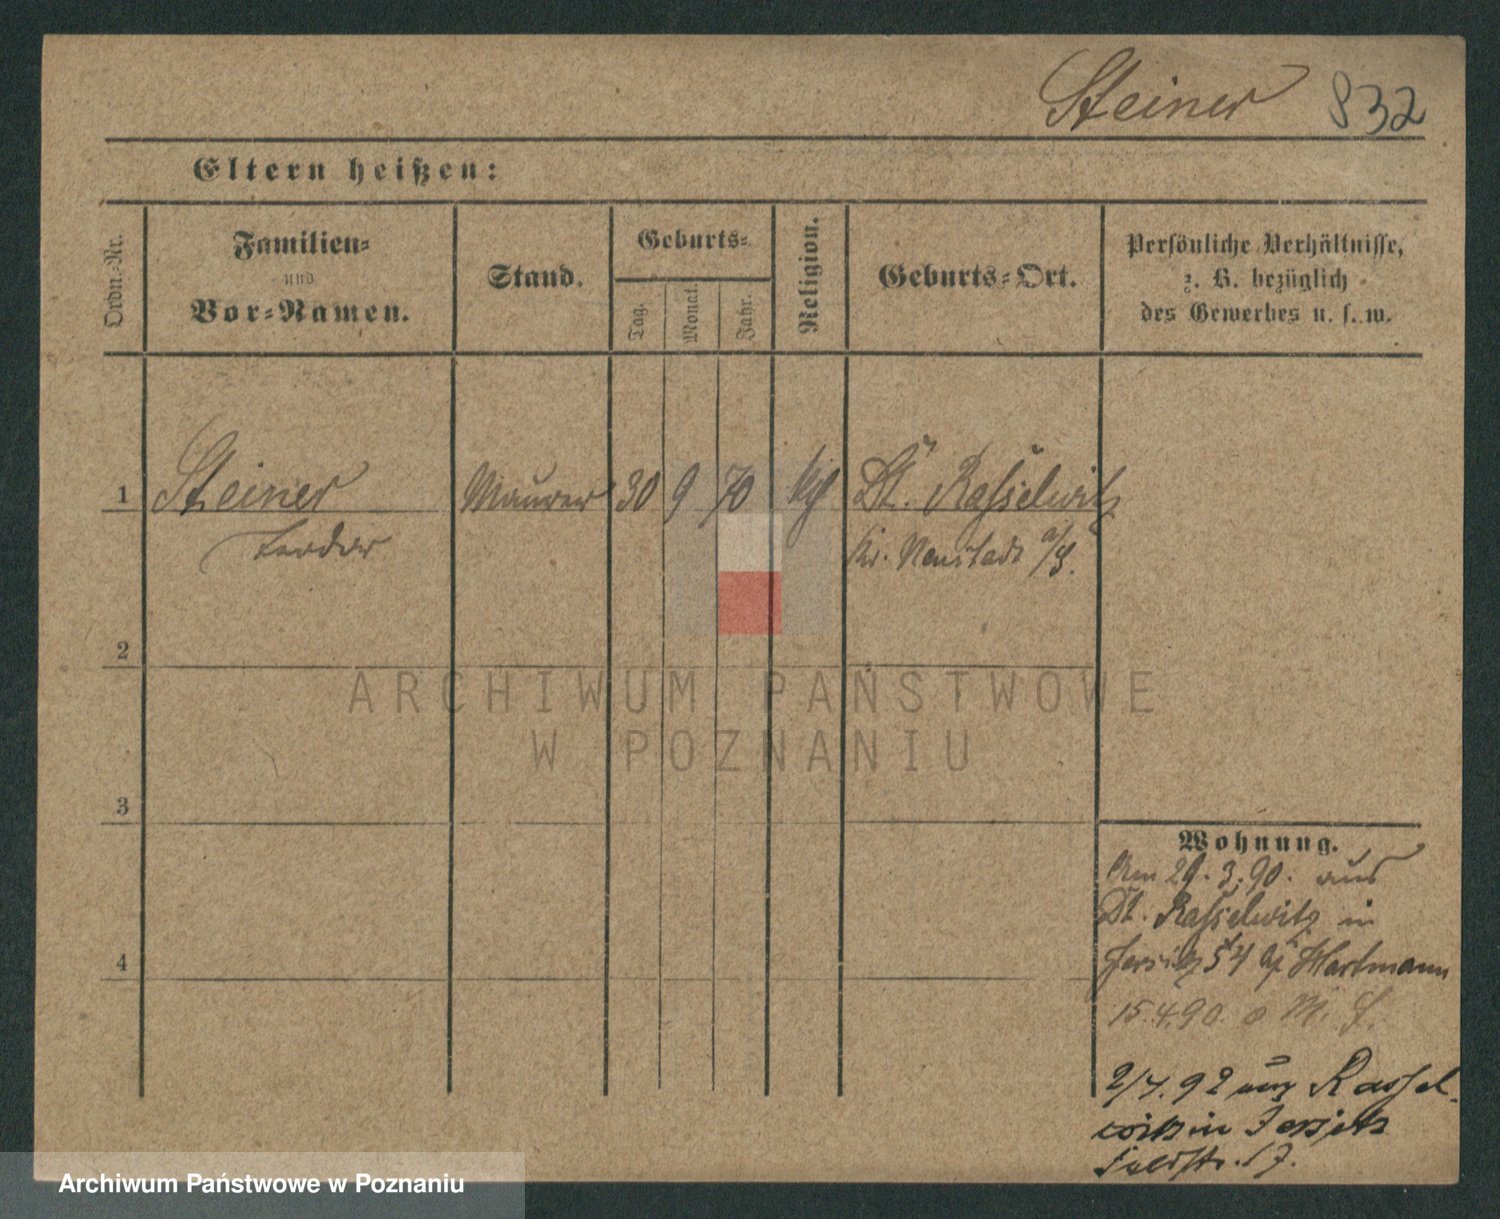 Steiner 832
Eltern heißen:
Ordn.-Nr.
Familien-
und
Vor-Namen.
Stand.
Geburts-
Tag.
Monat.
Jahr.
Religion.
Geburts-Ort.
Persönliche Verhältnisse,
z. B. bezüglich
des Gewerbes u. s. w.
1 Steiner Maurer 30 9 70 Dt. Rasselwitz
Teodor Kr. Neustadt o/S.
2
ARCHIWUM PAŃSTWOWE
W POZNANIU
3
Wohnung.
Am 29.3.90. aus
Dt. Rasselwitz in
Jersitz 54 Hartmann
4
15.4.90. o M. S.
2/4.92 aus Rassel-
witz in Jersitz
Feldstr. 17.
Archiwum Państwowe w Poznaniu